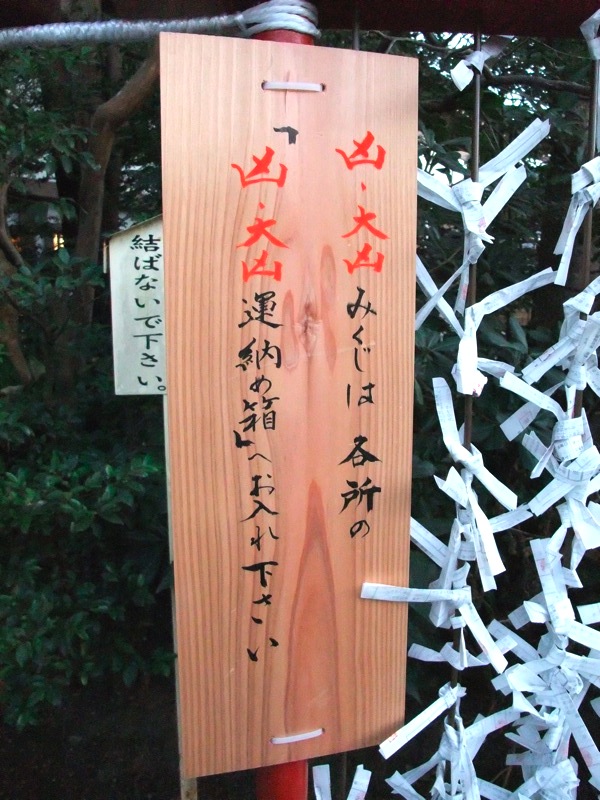 凶、大凶みくじは各所の
「凶、大凶運納め箱」へお入れ下さい
結ばないで下さい。